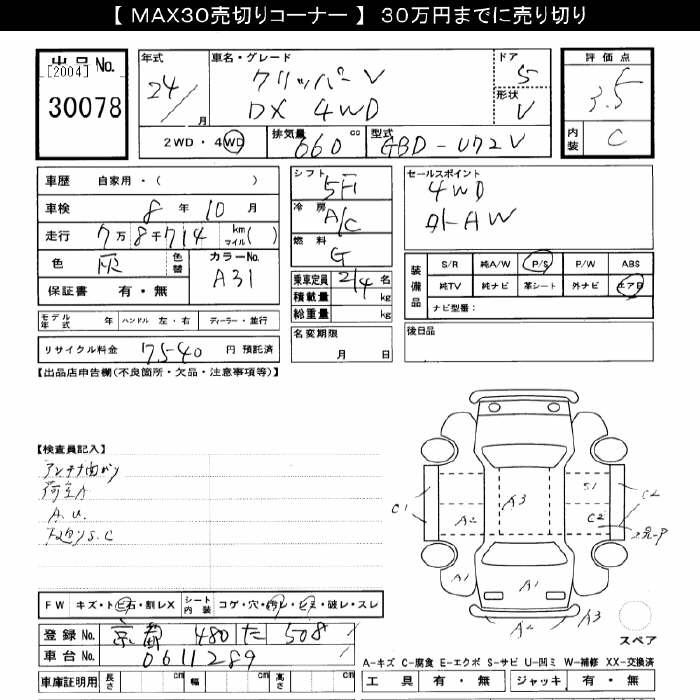 【 MAX30売切りコーナー 】 30万円までに売り切り
出品 No.
[2004]
30078
年式
24/ 月
車名・グレード
クリッパーV
DX 4WD
ドア
5
形状
V
2WD・4WD
排気量
660 cc
型式
GBD-U72V
評価点
3.5
内装
C
車歴 自家用・( )
車検 8 年 10 月
走行 7万8千714 km マイル( )
色 灰 色替 カラーNo. A31
保証書 有・無
モデル年式 年 ハンドル 左・右 ディーラー・並行
リサイクル料金 7540 円 預託済
シフト
5F
冷房
A/C
燃料
G
乗車定員 2/4 名
積載量 kg
総重量 kg
名変期限
月 日
セールスポイント
4WD
外AW
装備品
S/R 純A/W P/S P/W ABS
純TV 純ナビ 革シート 外ナビ エアB
ナビ型番:
後日品
【出品店申告欄(不良箇所・欠品・注意事項等)】
【検査員記入】
アンテナ曲がり
荷室A
A.U.
下廻りS.C
C1
A2
A3
S1
C2
C2
A1
A1
A2
A3
スペア
FW キズ・ト ビ石・割レX シート内装 コゲ・穴・汚レ・ヒビ・破レ・スレ
登録 No. 京都 480 た 508
車台 No. 0611289
車庫証明用 長さ cm 幅 cm 高さ cm
A-キズ C-腐食 E-エクボ S-サビ U-凹ミ W-補修 XX-交換済
工具 有・無 ジャッキ 有・無